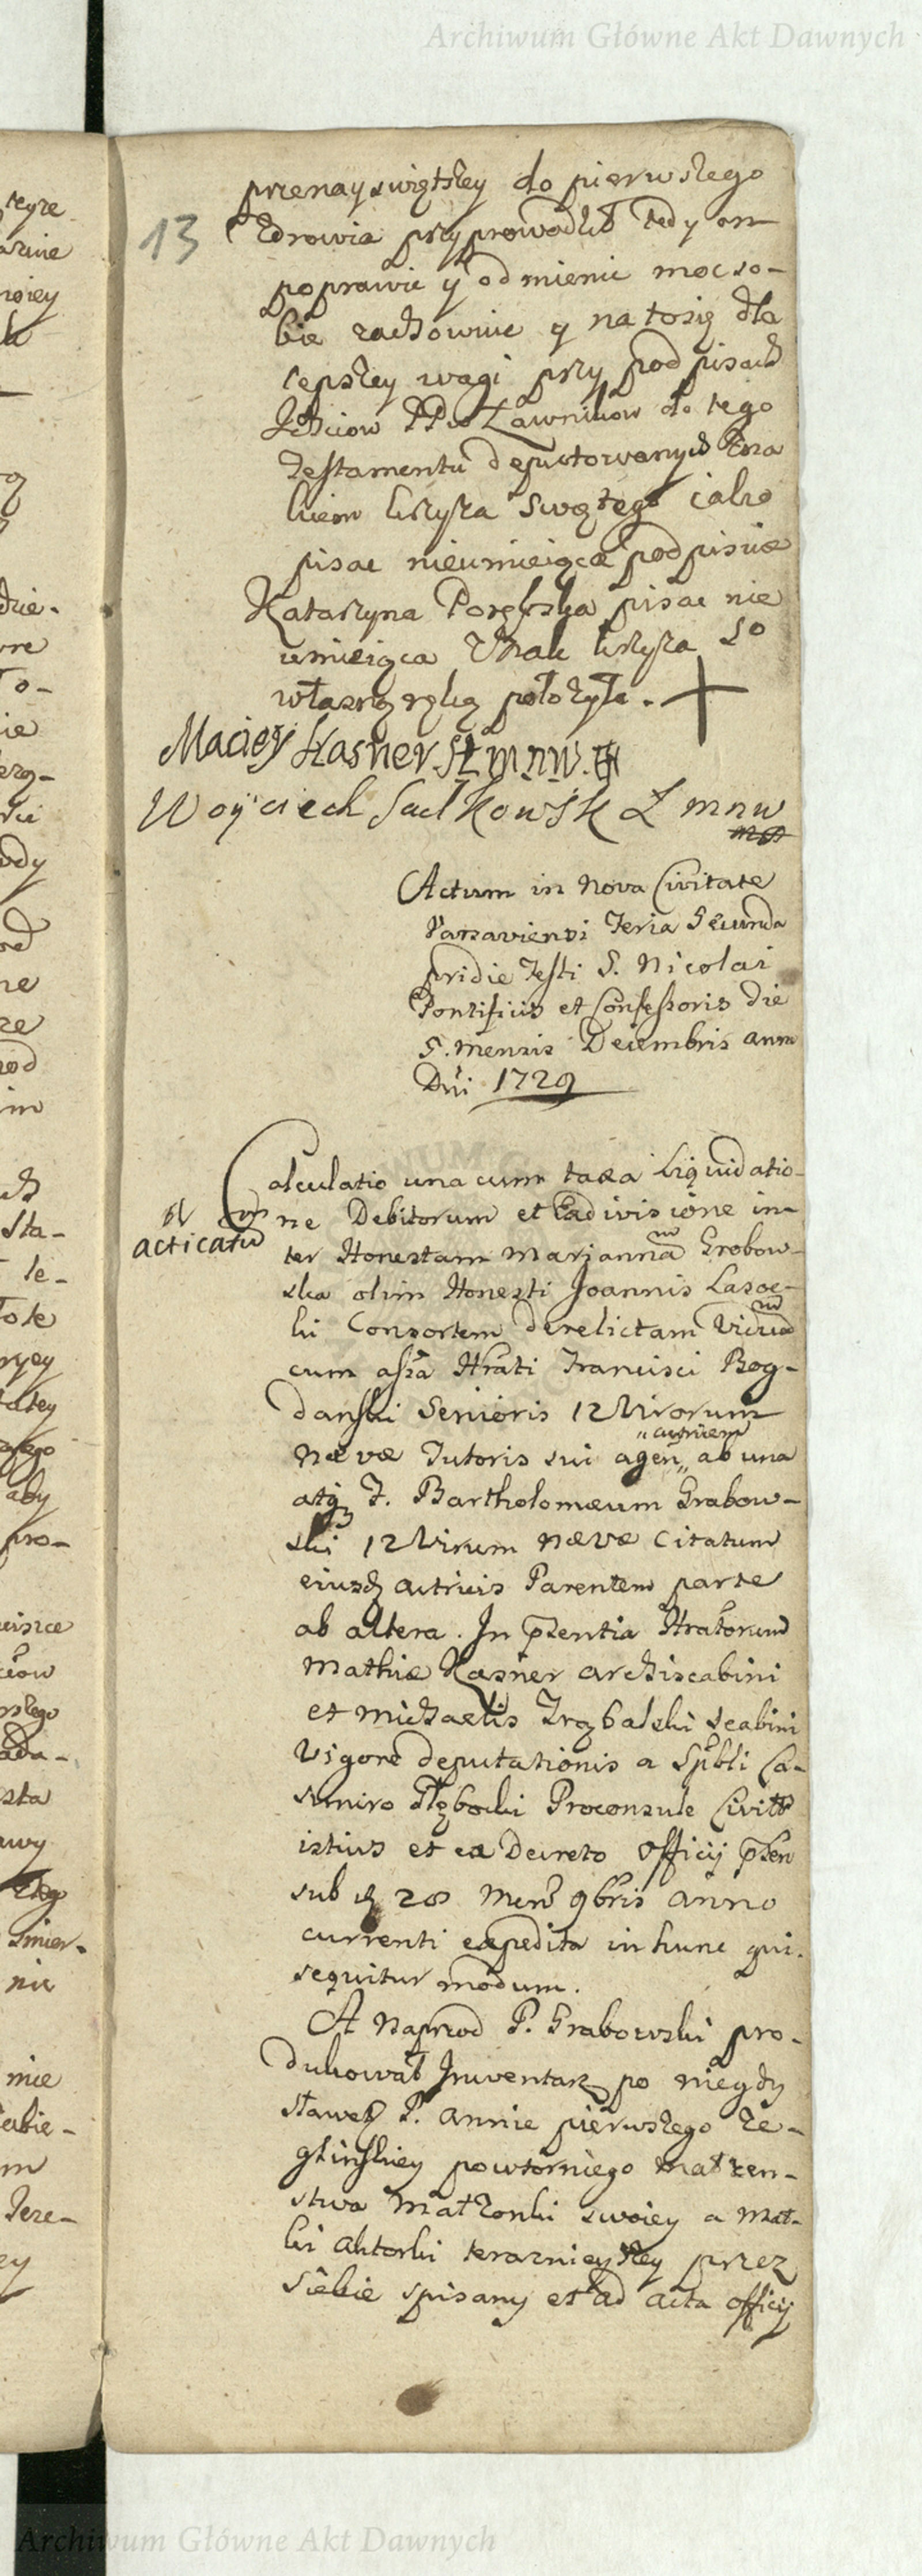 Archiwum Główne Akt Dawnych
13
przenayswiętszey do pierwszego
Zdrowia przyprowadził tedy on
poprawic y odmienic moc so-
bie zachowuie y na to się dla
lepszey wagi przy podpisach
Ichciow PPw Ławnikow do tego
Testamentu deputowanych Zna
kiem krzyza Swętego iako
pisac nieumieiącæ podpisuie
Katarzyna pisac nie
umieiąca Znak krzyza So
własną ręką położyła. +
Maciey Kasner
Woyciech Sadkowsk Ł m n w
mp
Actum in Nova Civitate
Varsaviensi Feria Secunda
pridie Festi S. Nicolai
Pontificis et Confessoris die
5. mensis Decembris anno
Dni 1729
Calculatio una cum taxa Liquidatio-
ne Debitorum et Exdivisione in-
acticatū
ter Honestam Mariannam Grobow-
ska olim Honesti Joannis Lasoc-
ki Consortem derelictam Viduā
cum assa Hrati Francisci Bog-
danski Senioris 12 Virorum
Næ Væ Tutoris sui agen ab una
actricem
atq F. Bartholomæum Grabow-
ski 12 Virum Næ Væ Citatum
eiusd actricis Parentem parte
ab altera. In pñtia Hratorum
Mathiæ Kasner Archiscabini
et Michaelis Trębalski scabini
Vigore deputationis a Spbli Ca-
simiro Głęboki Proconsule Civitt
istius et ex Decreto Officij
sub d 28 Mens 9bris anno
currenti expedita in hunc qui.
sequitur modum.
A naprzod P. Grabowski pro-
dukował Inwentarz po niegdy
sławet P. Annie pierwszego Ze-
glinskiey powtornego małzen-
stwa Małżonki swoiey a Mat-
ki Aktorki teraznieyszey przez
siebie spisany et ad acta officij
Archiwum Główne Akt Dawnych